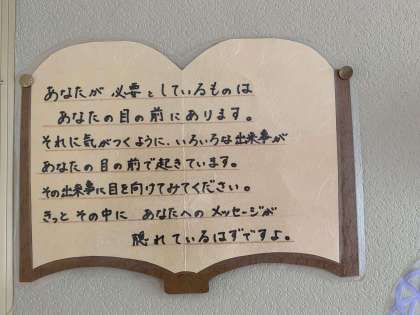 あなたが 必要としているものは
あなたの目の前にあります。
それに気がつくように、いろいろな出来事が
あなたの目の前で起きています。
その出来事に目を向けてみてください。
きっと その中に あなたへの メッセージが
隠れているはずですよ。